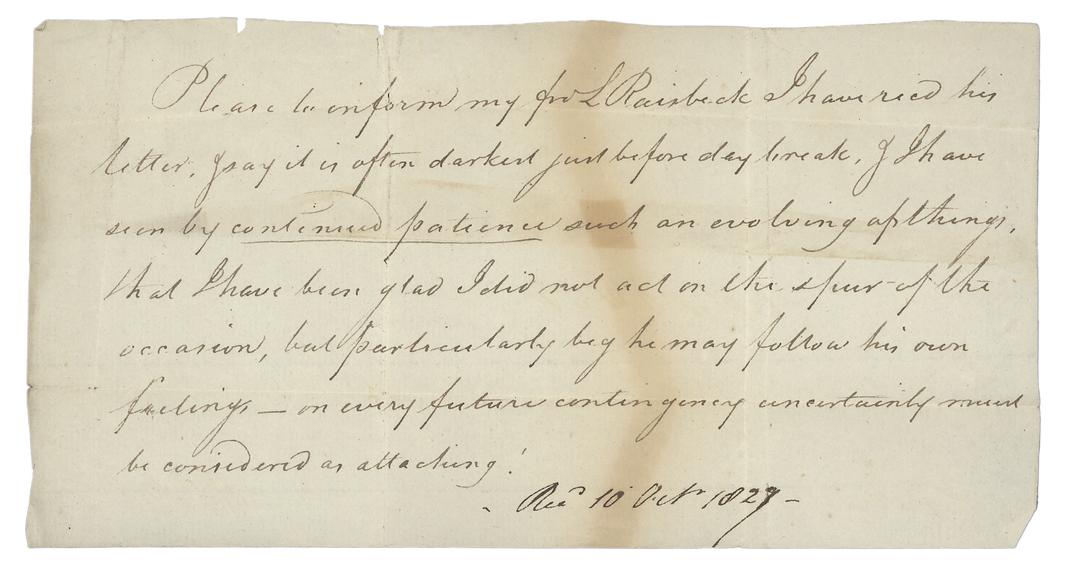 Please to inform my frd L Raisbeck I have recd his
letter, & say it is often darkest just before day break, & I have
seen by continued patience such an evolving of things,
that I have been glad I did not act on the spur of the
occasion, but particularly beg he may follow his own
feelings — on every future contingency uncertainty must
be considered as attaching!
- Recd 10 Octr 1827 -